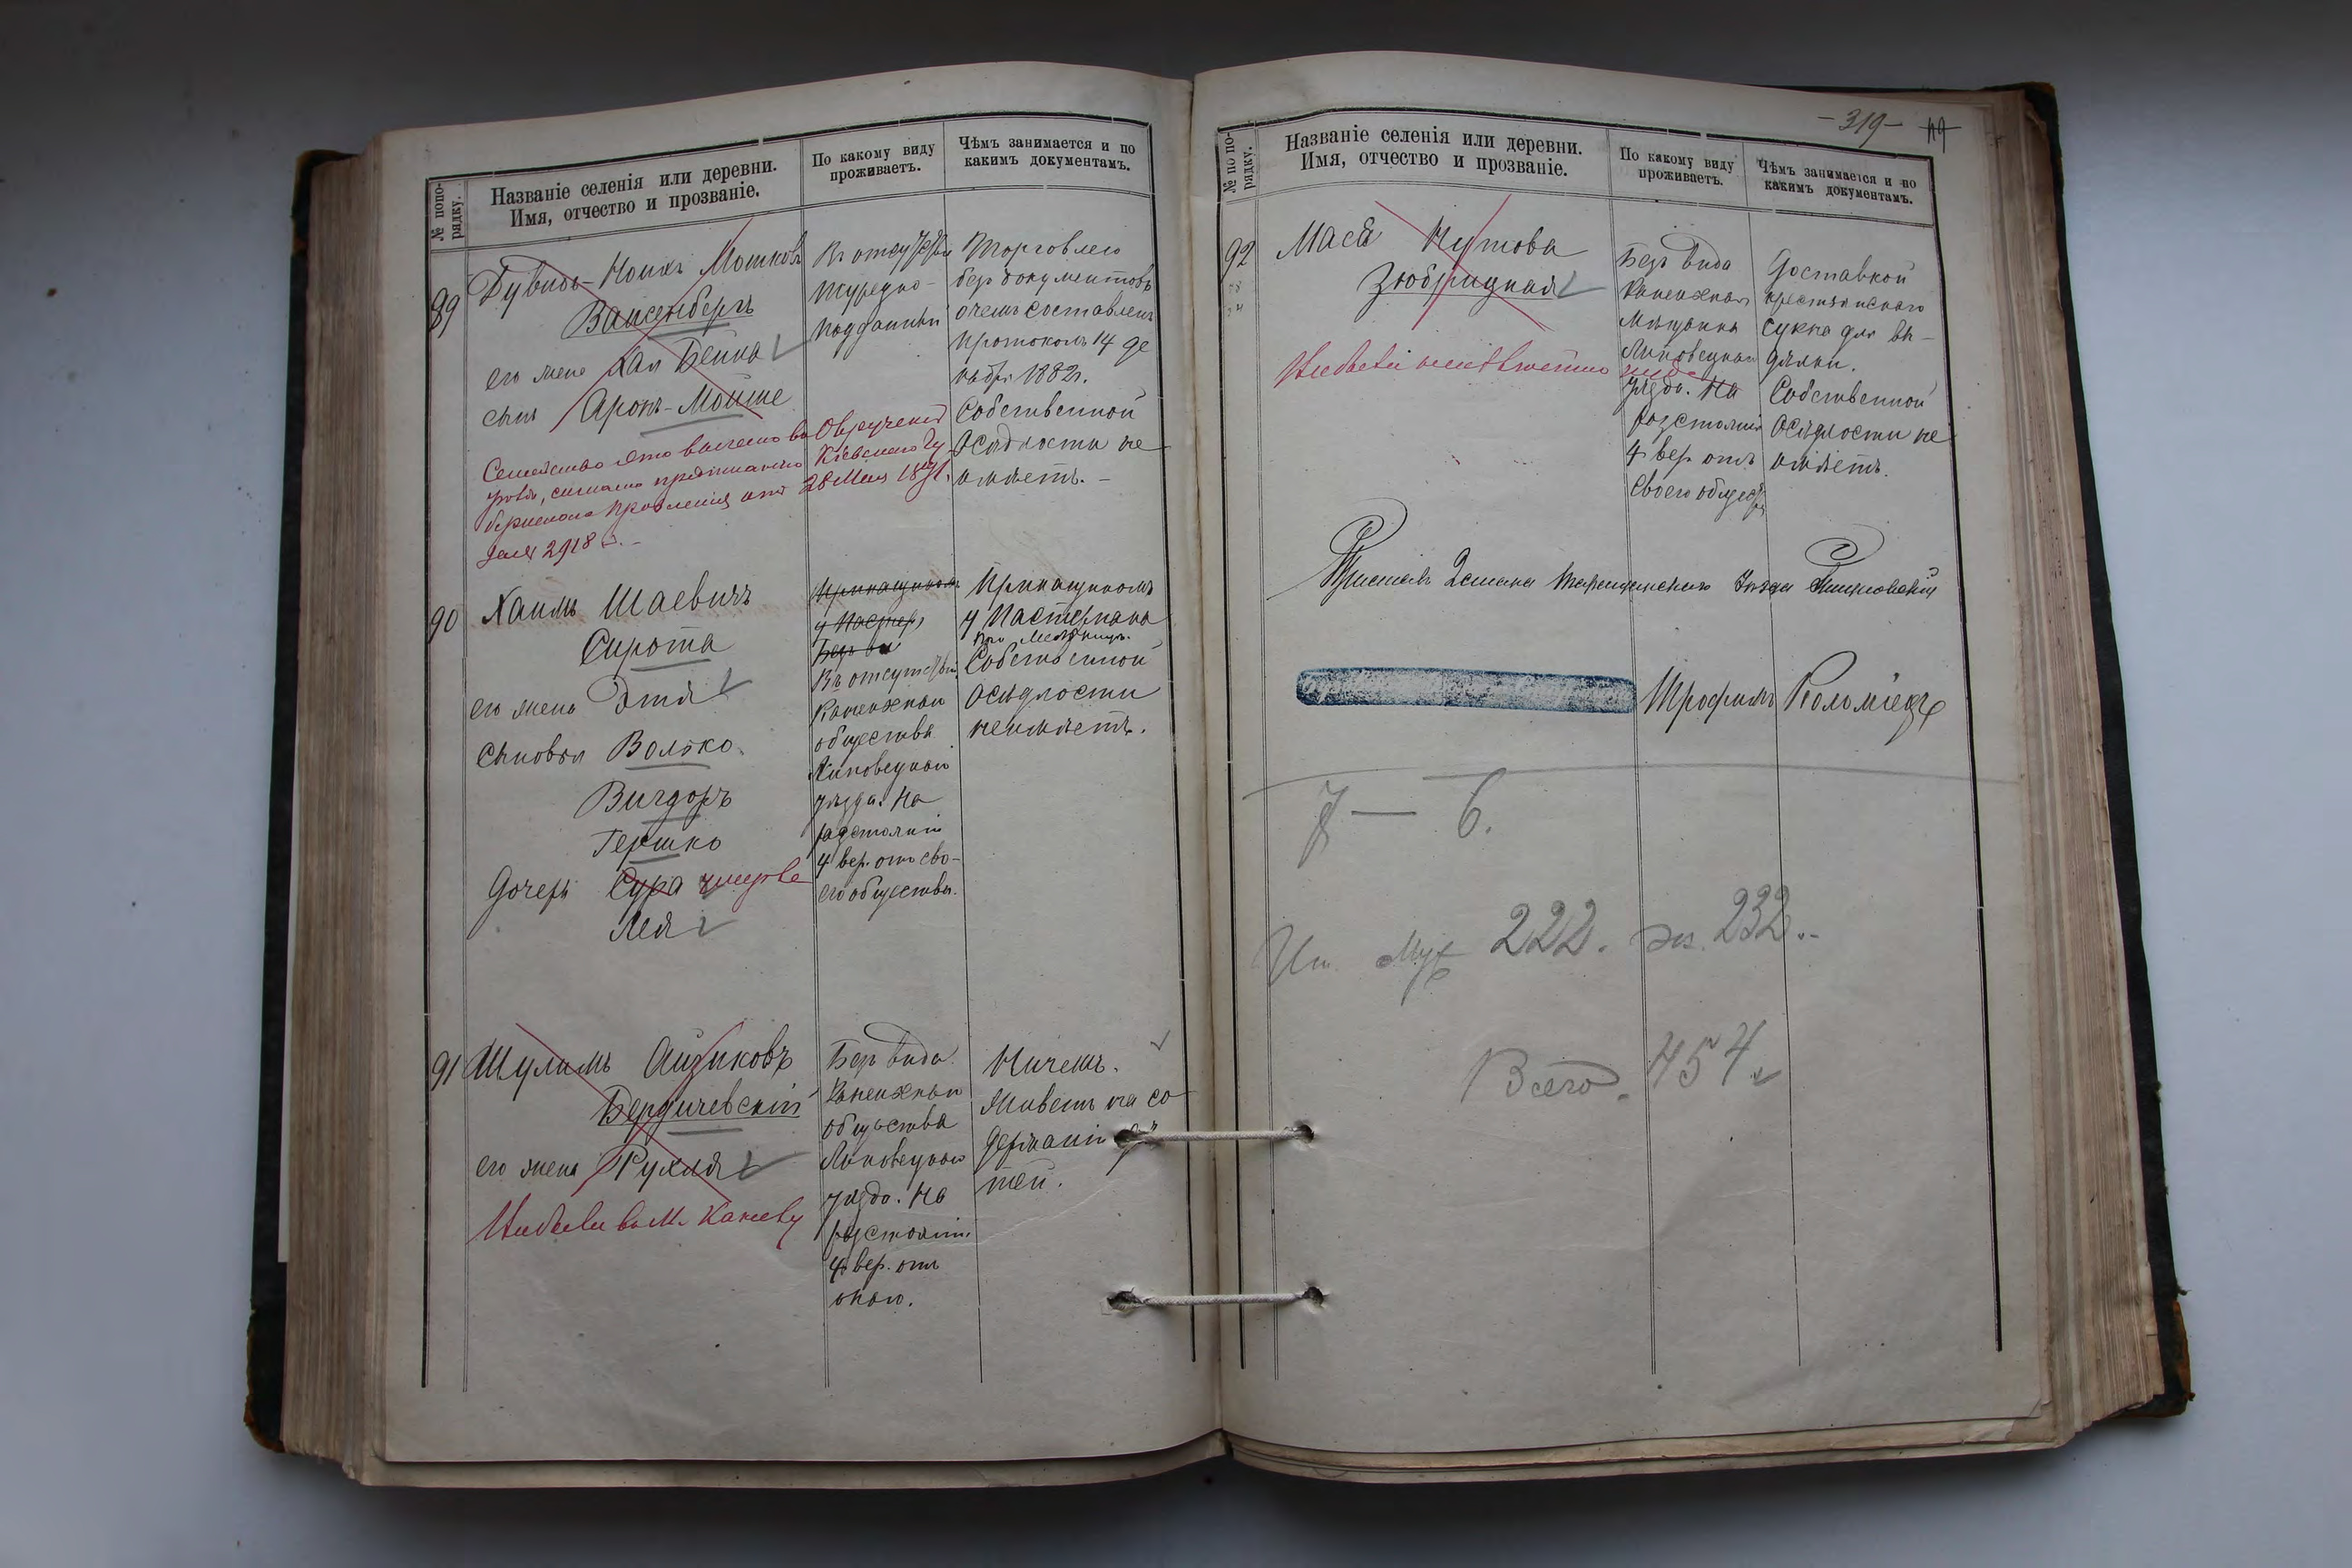 № попо-
рядку.
Названіе селенія или деревни.
Имя, отчество и прозваніе.
По какому виду
проживаетъ.
Чѣмъ занимается и по
какимъ документамъ.
89
Мошковъ
Вайсенбергъ
его жена Хая Бейна
сынъ Аронъ-Мойше
Семейство это выслано во
согласно предписанію Кіевскаго Гу
Правленія отъ 28 Мая 1891.
2918
Въ отсутствіи
турецко-
подданный
Торговлею
безъ документовъ
о чемъ составленъ
протоколъ 14 де
кабря 1882г.
Собственной
осѣдлости не
имѣетъ. –
90
Хаимъ Шаевичъ
Сирота
его жена Этя
сыновья Волько
Вигдоръ
Гершко
дочери Сура умерла
Лея
Прикащикомъ
у Пастер
Безъ ви
Въ отсутствіи
общества
Липовецкаго
уѣзда. На
разстояніи
4 вер. отъ сво-
его общества.
Прикащикомъ
у Пастермана
Собственной
осѣдлости
неимѣетъ.
91
Шулимъ Айзиковъ
Бердичевскій
его жена Рухля
Выбыли въ м.
Безъ вида
общества
Липовецкаго
уѣзда. На
разстояніи
4 вер. отъ
онаго.
Ничемъ.
Живетъ на со
держаніи дѣ
тей.
-319-
№ по по-
рядку.
Названіе селенія или деревни.
Имя, отчество и прозваніе.
По какому виду
проживаетъ.
Чѣмъ занимается и по
какимъ документамъ.
92
Мася Нутова
Зюбрицкая
неизвѣстно куда
Безъ вида
мѣщанка
Липовецкаго
уѣзда. На
разстояніи
4 вер. отъ
своего общест
Доставкой
крестьянскаго
сукна для вы-
дѣлки.
Собственной
осѣдлости не
имѣетъ.
Приставъ 2 стана Таращанскаго Уѣзда
Трофимъ Коломіецъ
7 — 6.
Ит. муж 222. ж. 232..
Всего. 454.